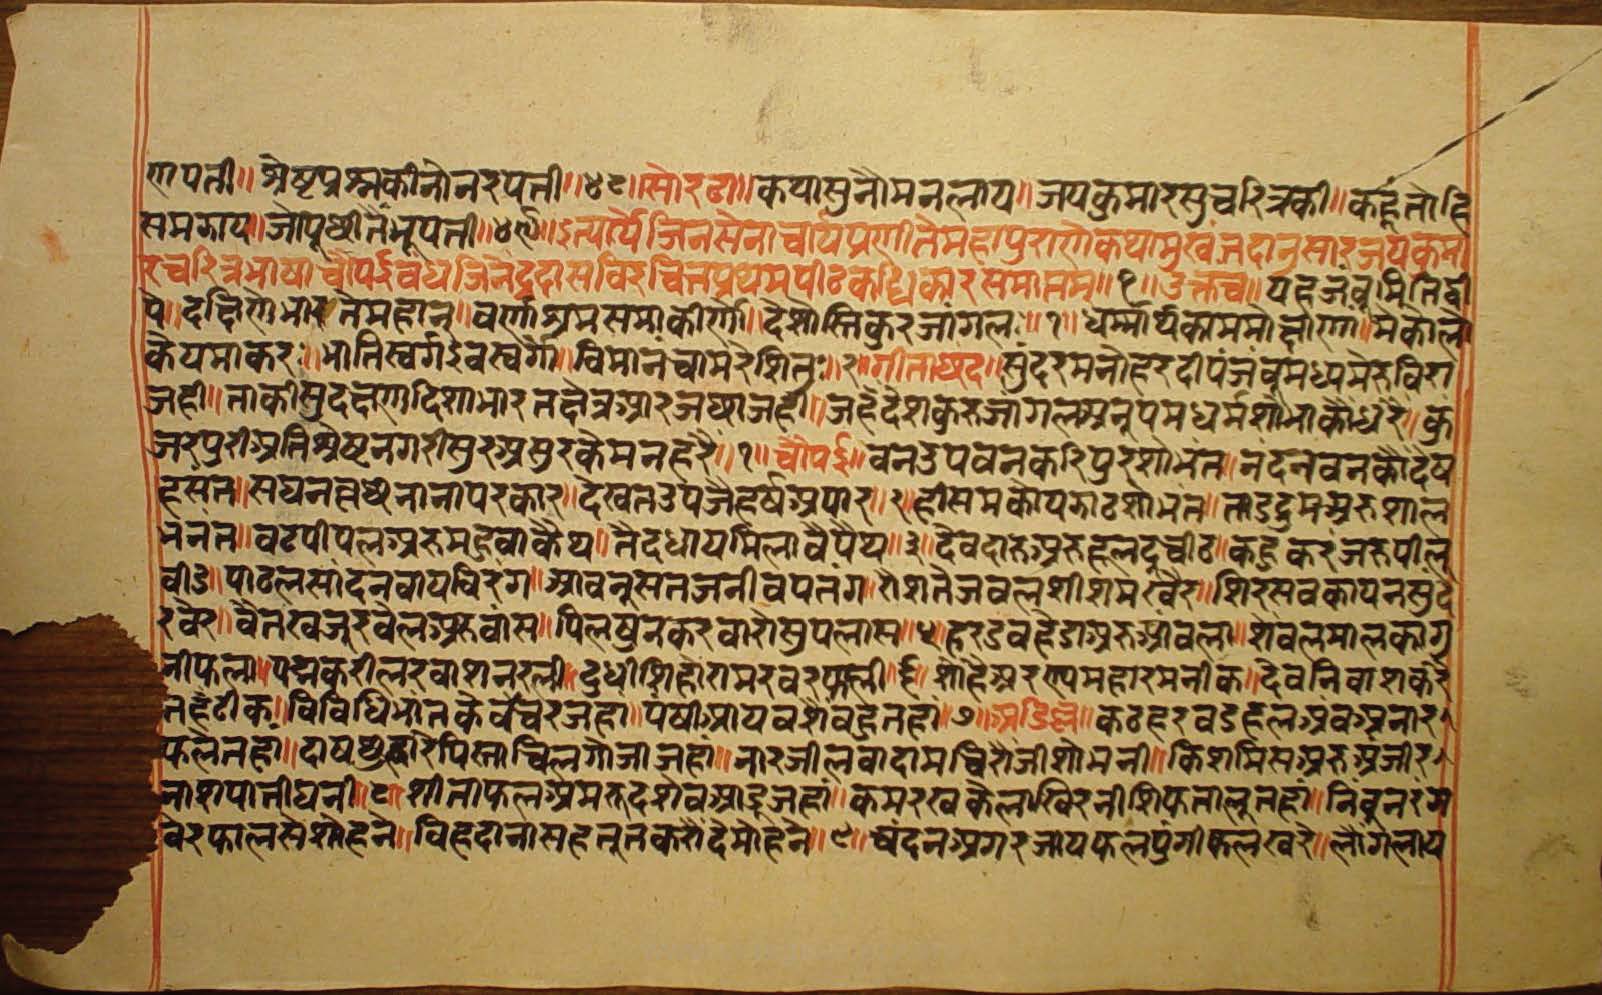 णपती॥ श्रेष्टप्रश्नकीनौनरपती॥४८॥सोरठा॥ कथासुनौमनलाय॥ जयकुमारसुचरित्रकी॥ कहूंतोहि
समझाय॥जोपूछीतैंभूपती॥४९॥इत्यार्येजिनसेनाचार्यप्रणीतेमहापुराणेकथामुखं तदानुसारजयकुमा
रचरित्रभाषाचौपईवंधजिनेंद्रदासविरचित्तप्रथमपीठक समाप्तम्॥१॥उक्तंच॥ यहजंबूमितिद्वी
पे॥दक्षिणेभारतेमहान्॥वर्णाश्रमसमाकीर्णो॥देशोस्तिकुरजांगलः॥१॥धर्म्मार्थकाममोक्षाणां॥मेकोलो
केयमाकरः॥भातिस्वर्गइवस्वर्गो॥विमानंवामरेशितुः॥२॥गीताछंद॥सुंदरमनोहरदीपंजंबूमध्यमेरुविरा
जही॥ताकीसुदक्षणदिशाभारतक्षेत्रआरजछाजही॥जहँदेशकुरुजांगलअनुपमधर्मशोभाकौंधरै॥कुं
जरपुरीअतिश्रेष्टनगरीसुरअसुरकेमनहरै॥१॥चौपई॥वनउपवनकरिपुरशोभंत॥नंदनवनकौंदेष
हसंत॥सघनवृक्षनानापरकार॥देखतउपजैहर्षअपार॥२॥ तालद्रुमअरुशाल
भनंत॥वटपीपलअरुमहुवाकैथ॥तैदधायमिलावैपैथ॥३॥देवदारुअरुहलदूवीठ॥कहुकरंजरुपीलू
वीउ॥पाठलसांदनवायविरंग॥आवनुसतजनीवपतंग॥ शीशमखैर॥शिरसवकायनसुंद
रवेर॥वैतखजूरवेलअरुवांस॥ सुपलास॥५॥हरडवहेडाअरुआंवला॥शेवलमालकांगु
नीफला॥पद्मकरील ॥६॥शोहैअरण्यमहारमनीक॥देवनिवाशकरे
तहंठीक॥विविधिभांतकेवेचरजहां॥पंषीआयवशेवहुतहां॥७॥अडिल्ल॥कठहरवडहलअंवअनार
फलेतहां॥दाषछुहारेपिस्ताचिलगोजाजहां॥नारजीलवादामचिरौंजीशोभनी॥किशमिसअरुअंजीर
नाशपातीघनी॥८॥शीताफलअमरुदशेवआडूजहां॥कमरखकेलाखिरनीशिफतालूतहां॥निंवूनरग
वेरफालसेशोहने॥विहदानासहतूतकरोंदेमोहने॥९॥चंदनअगरजायफलपुंगीफलखरे॥लौंगलाय